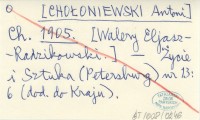 [CHOŁONIEWSKI Antoni]
Ch. 1905. [Walery Eljasz-
Radzikowski.] — Życie
i Sztuka (Petersburg) nr 13:
6 (dod. do Kraju).